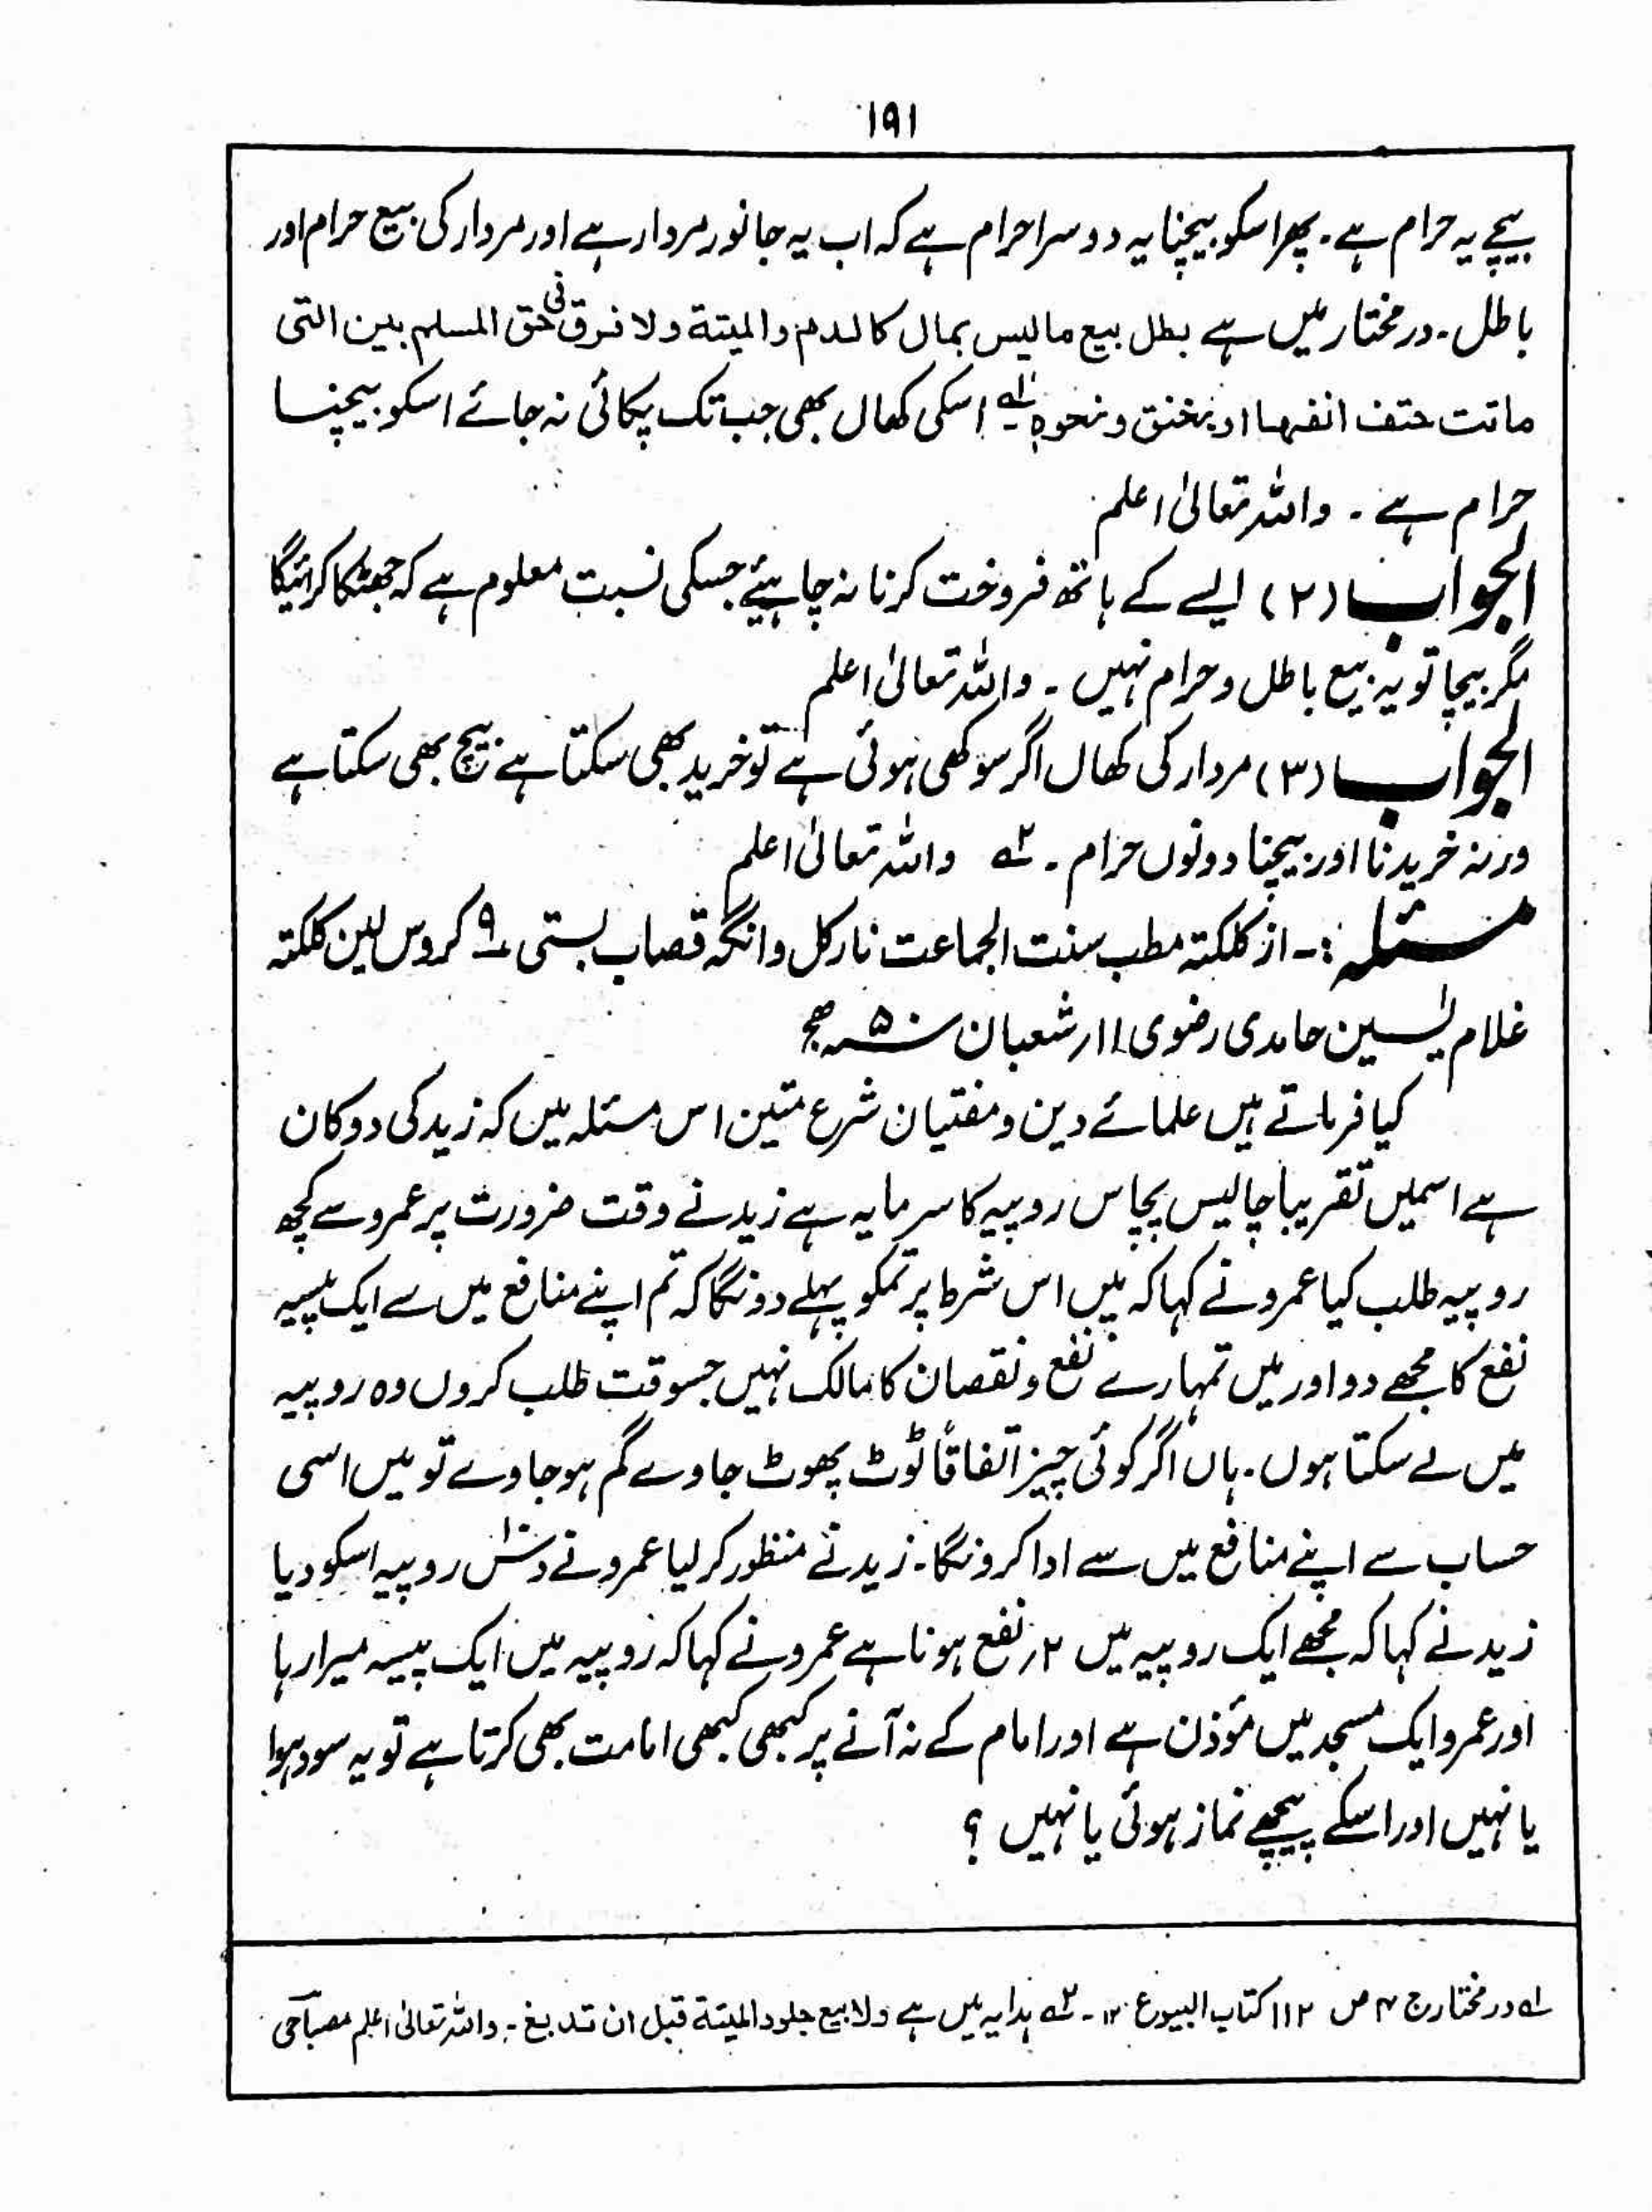 ۱۹۱
بیچے یہ حرام ہے۔ پھر اسکو بیچنا یہ دوسرا حرام ہے کہ اب یہ جانور مردار ہے اور مردار کی بیع حرام اور
باطل۔ در مختار میں ہے بطل بیع مالیس بمال کالدم والمیتة ولا فرق فی حق المسلم بین التی
ماتت حتف انفہا او بخنق ونحوہ ۱ے اسکی کھال بھی جب تک پکائی نہ جائے اسکو بیچنا
حرام ہے ۔ واللہ تعالیٰ اعلم
الجواب (۲) ایسے کے ہاتھ فروخت کرنا نہ چاہیئے جسکی نسبت معلوم ہے کہ جھٹکا کرائیگا
مگر بیچا تو یہ بیع باطل و حرام نہیں ۔ واللہ تعالیٰ اعلم
الجواب (۳) مردار کی کھال اگر سوکھی ہوئی ہے تو خرید بھی سکتا ہے بیچ بھی سکتا ہے
ورنہ خریدنا اور بیچنا دونوں حرام ۔ ۲ے واللہ تعالیٰ اعلم
مسئلہ :۔ از کلکتہ مطب سنت الجماعت نارکل وانگہ قصاب بستی ۹ کروس لین کلکتہ
غلام یٰسین حامدی رضوی ۱۱ر شعبان سنہ ۵۰ھج
کیا فرماتے ہیں علمائے دین و مفتیان شرع متین اس مسئلہ میں کہ زید کی دوکان
ہے اسمیں تقریبا چالیس پچاس روپیہ کا سرمایہ ہے زید نے وقت ضرورت پر عمرو سے کچھ
روپیہ طلب کیا عمرو نے کہا کہ میں اس شرط پر تمکو پہلے دونگا کہ تم اپنے منافع میں سے ایک پیسہ
نفع کا مجھے دو اور میں تمہارے نفع و نقصان کا مالک نہیں جسوقت طلب کروں وہ روپیہ
میں لے سکتا ہوں۔ ہاں اگر کوئی چیز اتفاقاً ٹوٹ پھوٹ جاوے گم ہو جاوے تو میں اسی
حساب سے اپنے منافع میں سے ادا کرونگا۔ زید نے منظور کر لیا عمرو نے دس۱۰ روپیہ اسکو دیا
زید نے کہا کہ مجھے ایک روپیہ میں ۲ر نفع ہوتا ہے عمرو نے کہا کہ روپیہ میں ایک پیسہ میرا رہا
اور عمرو ایک مسجد میں مؤذن ہے اور امام کے نہ آنے پر کبھی کبھی امامت بھی کرتا ہے تو یہ سود ہوا
یا نہیں اور اسکے پیچھے نماز ہوئی یا نہیں ؟
۱ے در مختار ج ۴ ص ۱۱۲ کتاب البیوع ۱۲۔ ۲ے ہدایہ میں ہے ولا بیع جلود المیتة قبل ان تدبغ ۔ واللہ تعالیٰ اعلم مصباحی